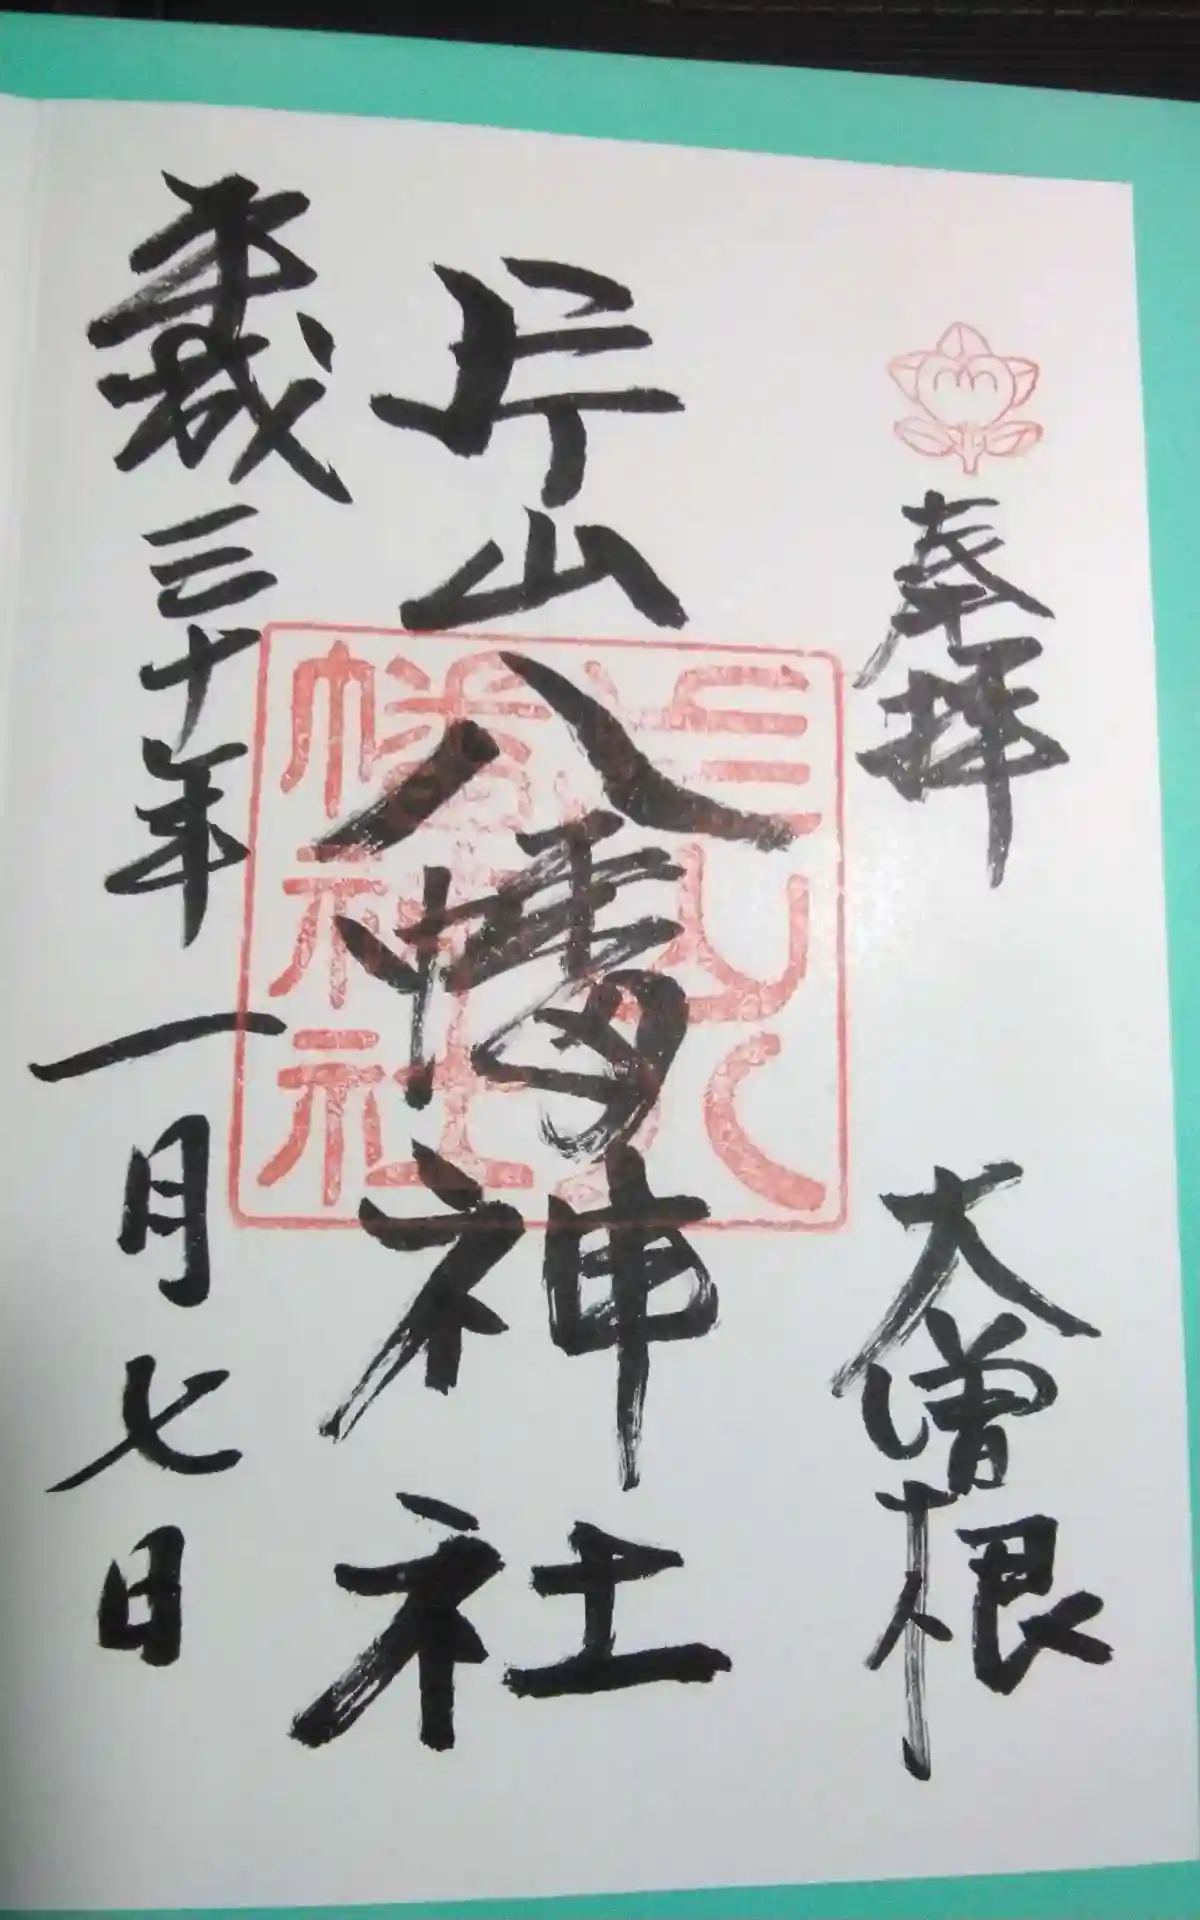 奉拝 大曽根
片山八幡神社
片山八幡神社
平成三十年一月七日